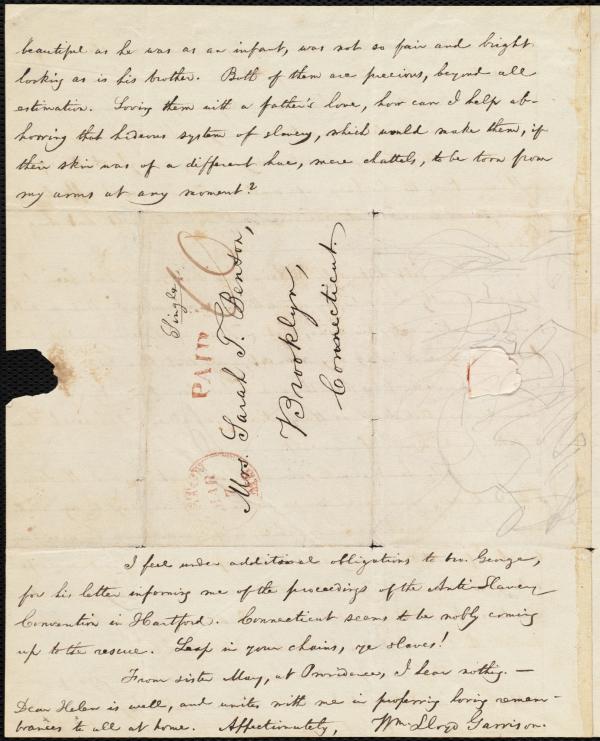 beautiful as he was as an infant, was not so fair and bright
looking as is his brother. Both of them are precious, beyond all
estimation. Loving them with a father's love, how can I help ab-
horring that hideous system of slavery, which would make them, if
their skin was of a different hue, mere chattels, to be torn from
my arms at any moment?
Single.
10
PAID
Mrs. Sarah T. Benson,
Brooklyn,
Connecticut.
MAR
I feel under additional obligations to bro. George,
for his letter informing me of the proceedings of the Anti-Slavery
Convention in Hartford. Connecticut seems to be nobly coming
up to the rescue. Leap in your chains, ye slaves!
From sister Mary, at Providence, I hear nothing. —
Dear Helen is well, and unites with me in proffering loving remem-
brances to all at home. Affectionately, Wm. Lloyd Garrison.